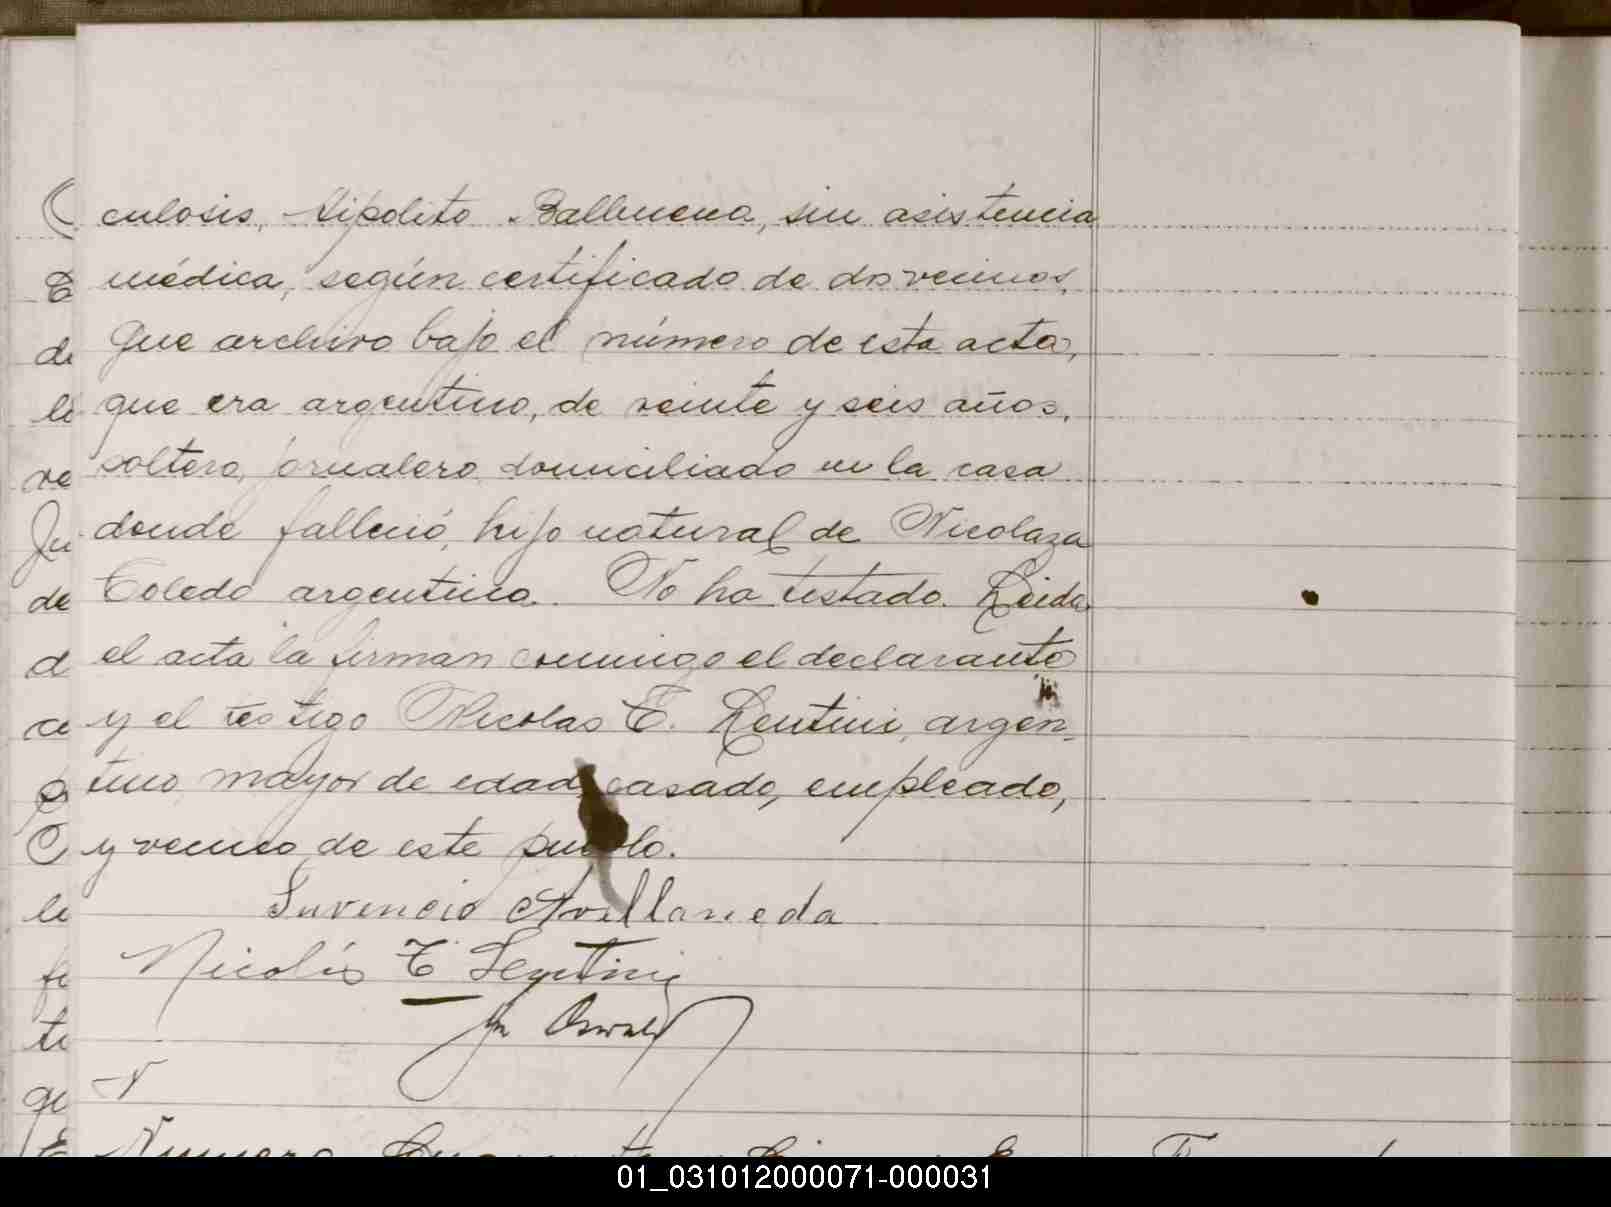 culosis, Hipolito Balbuena, sin asistencia
médica, según certificado de dos vecinos,
que archivo bajo el número de esta acta,
que era argentino, de veinte y seis años,
soltero, jornalero domiciliado en la casa
donde falleció, hijo natural de Nicolaza
Toledo argentina. No ha testado. Leida
el acta la firman conmigo el declarante
y el testigo Nicolas E. Lentini, argen-
tino, mayor de edad, casado, empleado,
y vecino de este pueblo.
Juvencio Avellaneda
Nicolás Lentini
01_031012000071-000031